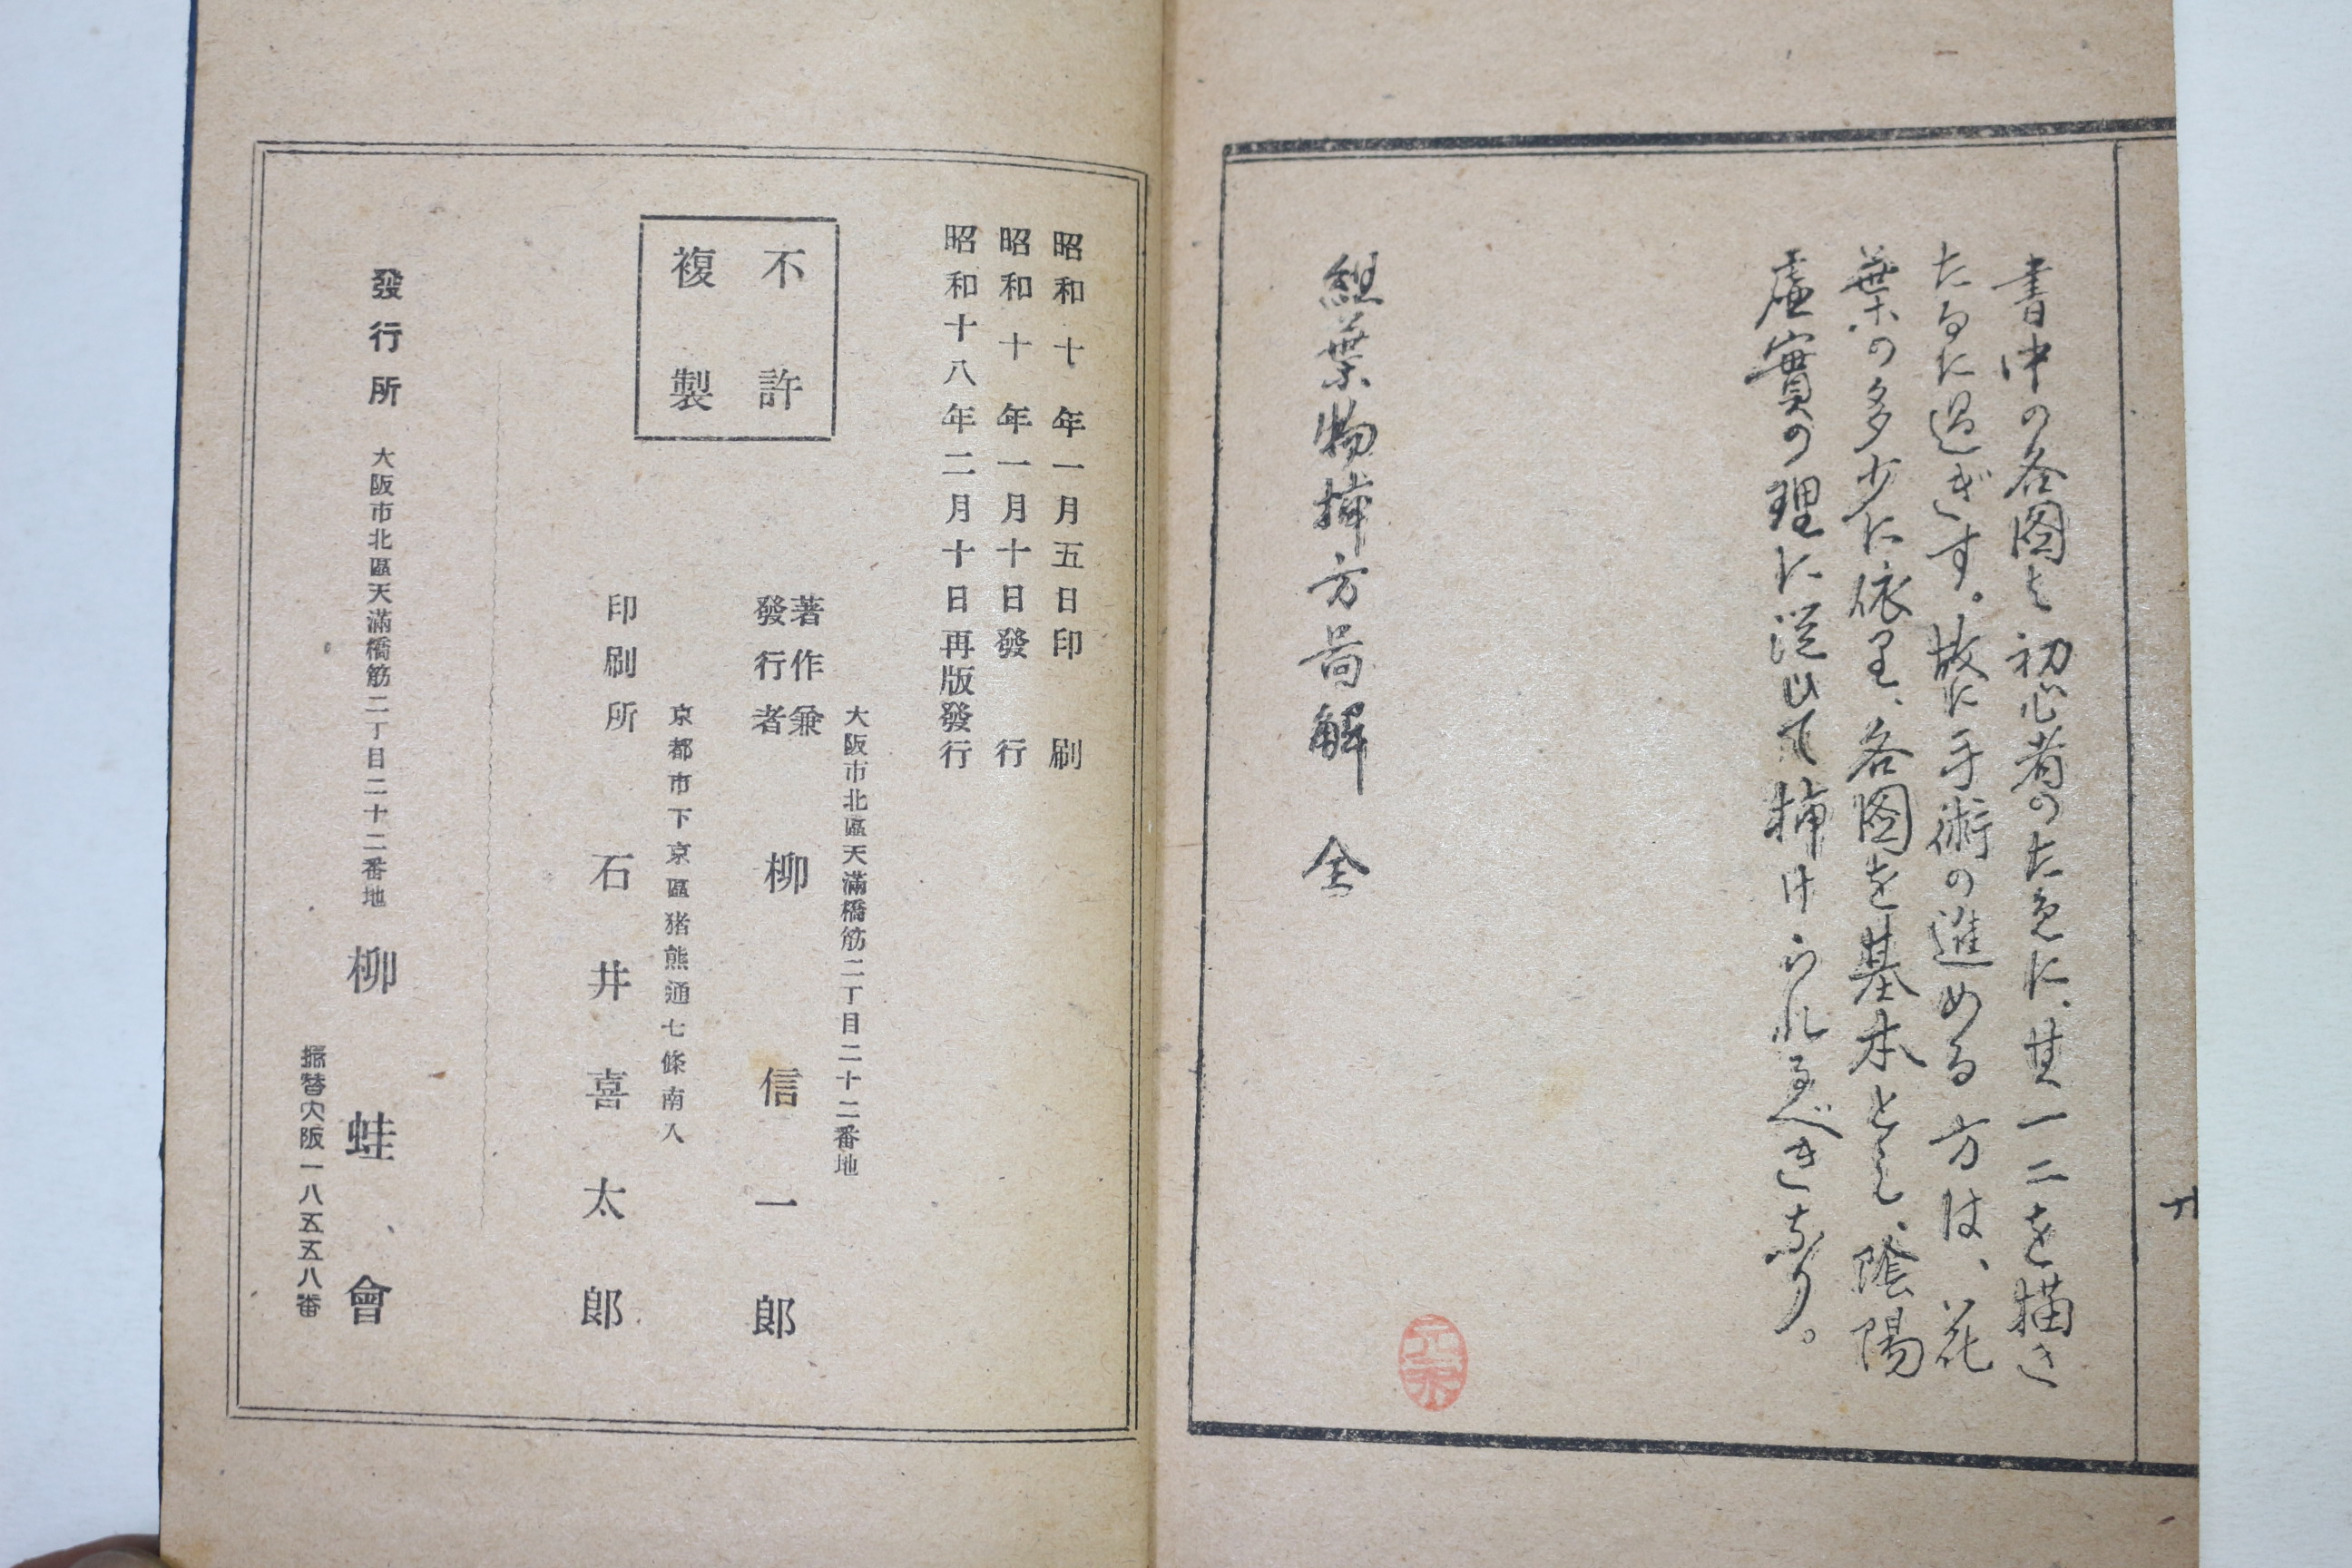 書中の各図は初心者のために、其一二を描き
たるに過ぎず。故に手術の進める方は、花
葉の多少に依り、各図を基本とし、陰陽
虚實の理に従ひて挿けられるべきなり。
組葉物挿方図解 全
昭和十年一月五日印刷
昭和十年一月十日發行
昭和十八年二月十日再版發行
不許
複製
大阪市北區天滿橋筋二丁目二十二番地
著作兼
發行者 柳信一郎
京都市下京區猪熊通七條南入
印刷所 石井喜太郎
發行所 大阪市北區天滿橋筋二丁目二十二番地 柳蛙會
振替大阪一八五五八番